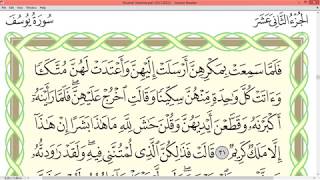 الجزء الثاني عشر
سورة يوسف
فَلَمَّا سَمِعَتْ بِمَكْرِهِنَّ أَرْسَلَتْ إِلَيْهِنَّ وَأَعْتَدَتْ لَهُنَّ مُتَّكَـًٔا
وَءَاتَتْ كُلَّ وَٰحِدَةٍ مِّنْهُنَّ سِكِّينًا وَقَالَتِ ٱخْرُجْ عَلَيْهِنَّ ۖ فَلَمَّا رَأَيْنَهُۥٓ
أَكْبَرْنَهُۥ وَقَطَّعْنَ أَيْدِيَهُنَّ وَقُلْنَ حَٰشَ لِلَّهِ مَا هَٰذَا بَشَرًا إِنْ هَٰذَآ
إِلَّا مَلَكٌ كَرِيمٌ ٣١ قَالَتْ فَذَٰلِكُنَّ ٱلَّذِى لُمْتُنَّنِى فِيهِ ۖ وَلَقَدْ رَٰوَدتُّهُۥ